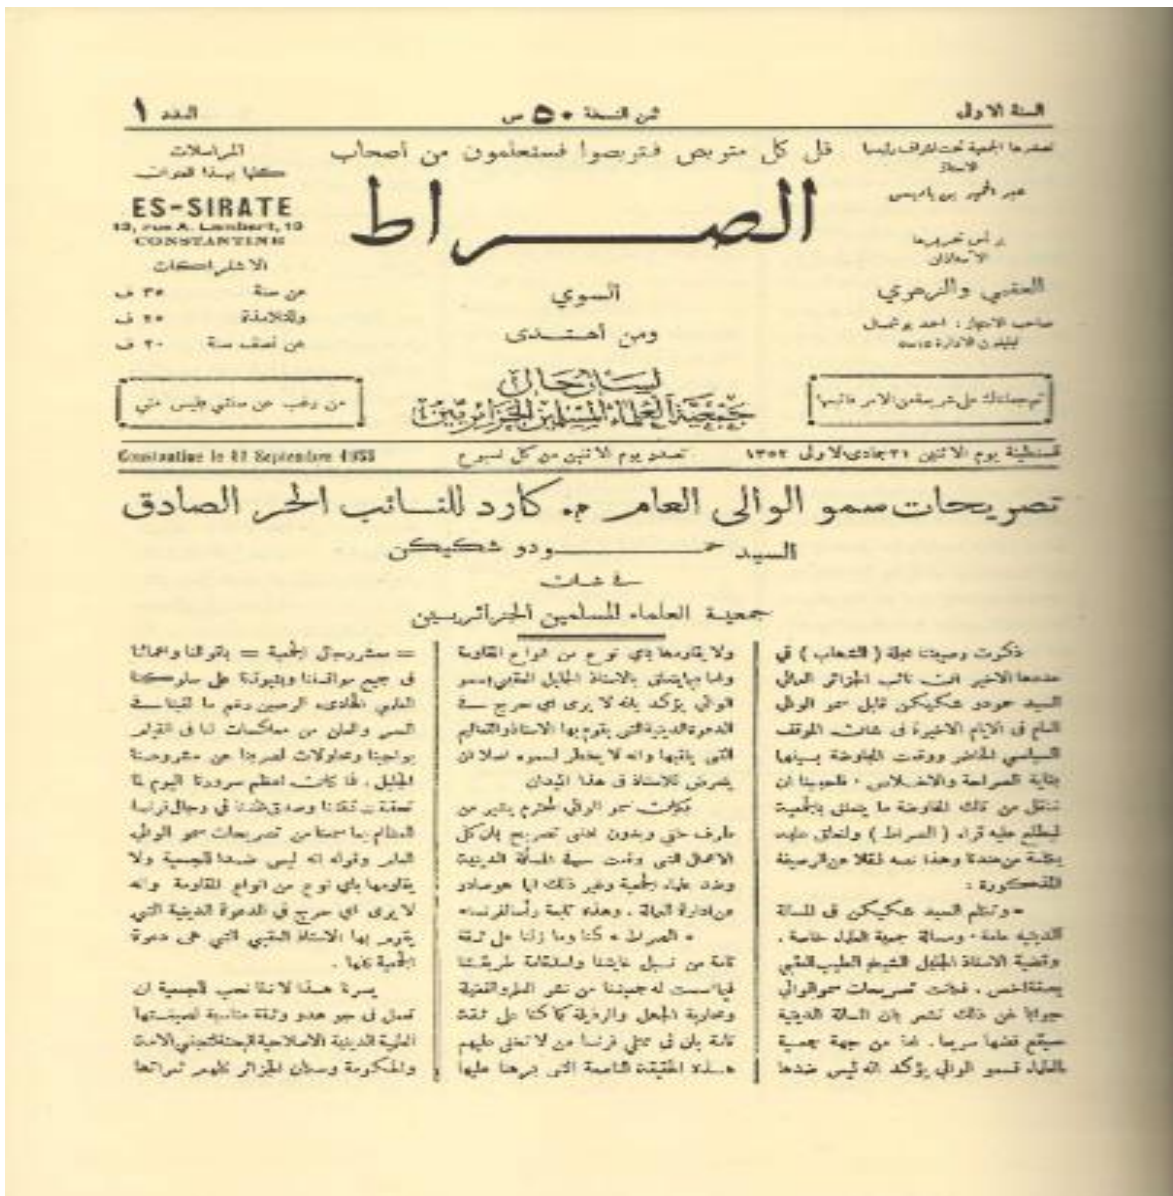 السنة الاولى
ثمن النسخة ٥٠ س
العدد ١
تصدرها الجمعية تحت اشراف رئيسها
الاستاذ
عبد الحميد بن باديس
يرأس تحريرها
الأستاذان
العقبي والزهري
صاحب الامتياز : احمد بوشمال
تيليفون الادارة
قل كل متربص فتربصوا فستعلمون من أصحاب
الصراط
السوي
ومن أهتدى
لسان حال
جمعية العلماء المسلمين الجزائريين
المراسلات
كلها بهذا العنوان
ES-SIRATE
13, rue A. Lambert, 13
CONSTANTINE
الاشتراكات
عن سنة ٣٥ ف
وللتلامذة ٢٥ ف
عن نصف سنة ٢٠ ف
ثم جعلناك على شريعة من الامر فاتبعها
من رغب عن سنتي فليس مني
قسنطينة يوم الاثنين ٢١ جمادى الاولى ١٣٥٢
تصدر يوم الاثنين من كل اسبوع
Constantine le 11 Septembre 1933
تصريحات سمو الوالى العام م. كارد للنائب الحر الصادق
السيد حمودو شكيكن
في شان
جمعية العلماء المسلمين الجزائريين
ذكرت رصيفتنا مجلة ( الشهاب ) في
عددها الاخير ان نائب الجزائر المالي
السيد حمودو شكيكن قابل سمو الوالي
العام فى الايام الاخيرة فى شان الموقف
السياسي الحاضر ووقعت المفاوضة بينهما
بغاية الصراحة والاخلاص . فاحببنا ان
ننقل من تلك المفاوضة ما يتعلق بالجمعية
ليطلع عليه قراء ( الصراط ) ولنعلق عليه
بكلمة من عندنا وهذا نصه نقلا عن الرصيفة
المذكورة :
« وتكلم السيد شكيكن فى المسألة
الدينية عامة . ومسالة جمعية العلماء خاصة .
وقضية الاستاذ الجليل الشيخ الطيب العقبي
بصفة اخص . فكانت تصريحات سمو الوالي
جوابا عن ذلك تشعر بان المسالة الدينية
سيقع فضها سريعا . اما من جهة جمعية
العلماء فسمو الوالي يؤكد انه ليس ضدها
ولا يقاومها باي نوع من انواع المقاومة
واما فيما يتعلق بالاستاذ الجليل العقبي فسمو
الوالي يؤكد بانه لا يرى اي حرج في
الدعوة الدينية التى يقوم بها الاستاذ والتعاليم
التى يلقيها وانه لا يخطر لسموه اصلا ان
يتعرض للاستاذ فى هذا الميدان
فكان سمو الوالي المحترم يشير من
طرف خفي وبدون ادنى تصريح بان كل
الاعمال التى وقعت في المسألة الدينية
وضد علماء الجمعية وغير ذلك انما هو صادر
عن ادارة العمالة . وهذه تابعة رأسا لفرنسا»
« الصراط » كنا وما زلنا على ثقة
تامة من نبل غايتنا واستقامة طريقتنا
فيما اسست له جمعيتنا من نشر العلم والفضيلة
ومحاربة الجهل والرذيلة كما كنا على ثقة
تامة بان فى ممثلي فرنسا من لا تخفى عليهم
هذه الحقيقة الناصعة التى برهنا عليها
= معشر رجال الجمعية = باقوالنا واعمالنا
فى جميع مواقفنا وبثبوتنا على سلوكنا
العلمي الهادىء الرصين رغم ما لقينا في
السر والعلن من معاكسات لنا فى القيام
بواجبنا ومحاولات لصرفنا عن مشروعنا
الجليل . فما كان اعظم سرورنا اليوم لما
تحقق ثقتنا وصدق ظننا في رجال فرنسا
العظام بما سمعنا من تصريحات سمو الوالي
العام وقوله انه ليس ضدا للجمعية ولا
يقاومها باي نوع من انواع المقاومة وانه
لا يرى اي حرج في الدعوة الدينية التي
يقوم بها الاستاذ العقبي التي هي دعوة
الجمعية كلها .
يسرنا هذا لاننا نحب للجمعية ان
تعمل فى جو هدوء وثقة مناسبة لصبغتها
العلمية الدينية الاصلاحية البحتة لتجني الامة
والحكومة وسكان الجزائر كلهم ثمراتها